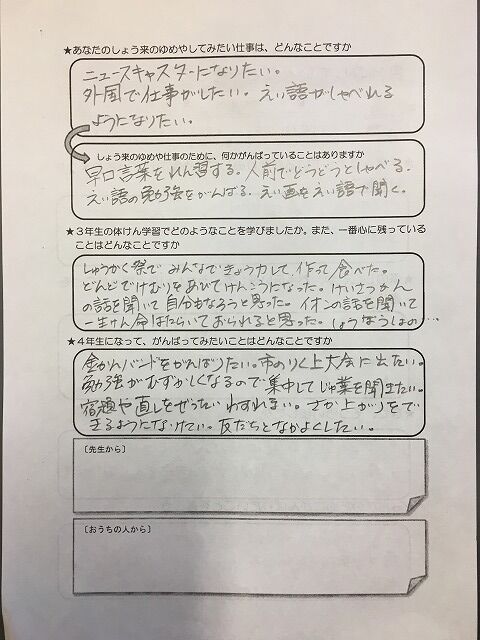 ★あなたのしょう来のゆめやしてみたい仕事は、どんなことですか
ニュースキャスターになりたい。
外国で仕事がしたい。えい語がしゃべれる
ようになりたい。
しょう来のゆめや仕事のために、何かがんばっていることはありますか
早口言葉をれん習する。人前でどうどうとしゃべる。
えい語の勉強をがんばる。えい画をえい語で聞く。
★３年生の体けん学習でどのようなことを学びましたか。また、一番心に残っている
ことはどんなことですか
しゅうかく祭で みんなできょう力して、作って食べた。
どんどでけむりをあびてけんこうになった。けいさつかん
の話を聞いて自分もなろうと思った。イオンの話を聞いて
一生けん命はたらいておられると思った。しょうぼうしょの…
★４年生になって、がんばってみたいことはどんなことですか
金かんバンドをがんばりたい。市のりく上大会に出たい。
勉強がむずかしくなるので集中してじゅ業を聞きたい。
宿題や直しをぜったいわすれない。さか上がりをで
きるようになりたい。友だちとなかよくしたい。
〔先生から〕
〔おうちの人から〕